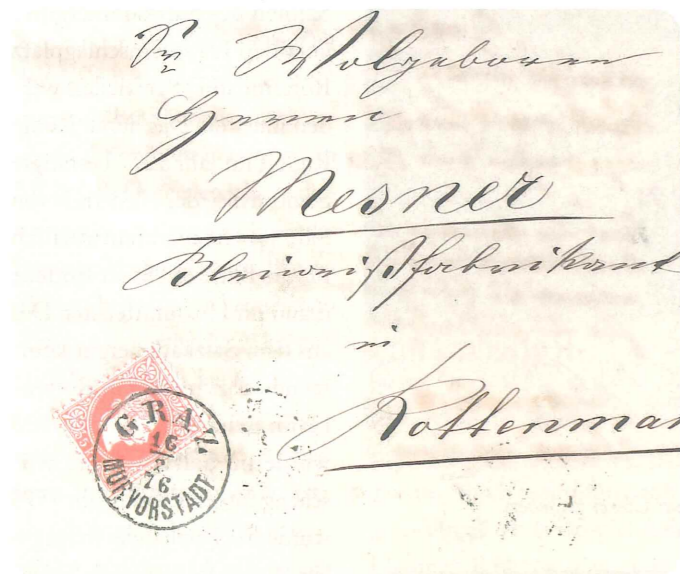 Sr. Wolgeboren
Herren
Mesner
Bleiweißfabrikant
in
Rottenman
GRAZ
16
76
MURVORSTADT